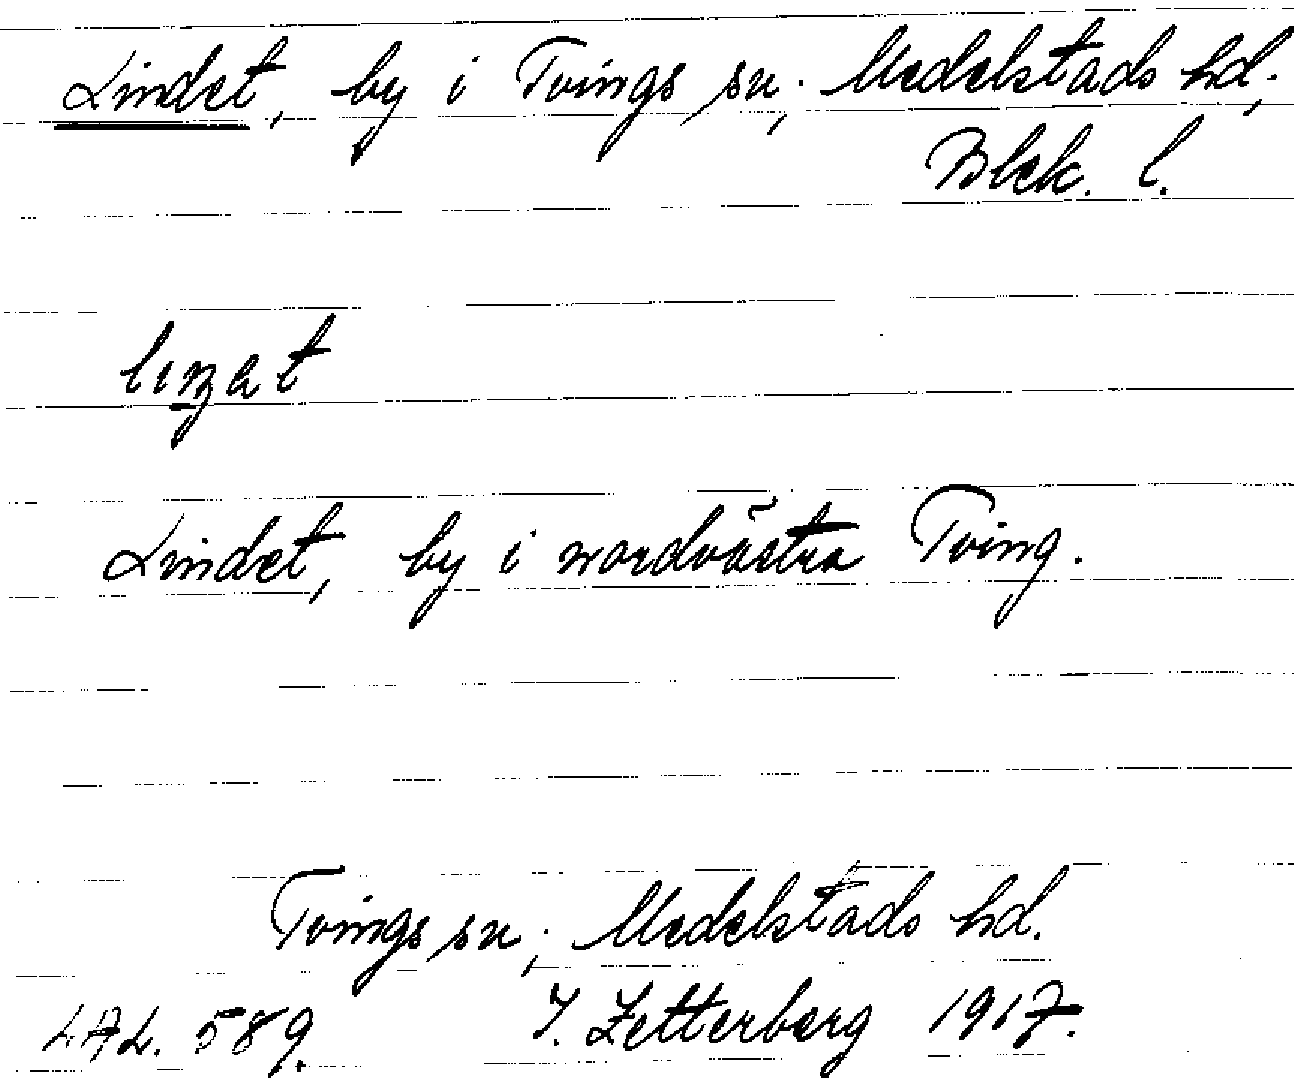 Lindet, by i Tvings sn; Medelstads hd;
Blek. l.
Lindet, by i nordvästra Tving.
Tvings sn; Medelstads hd.
LAL. 589. J. Zetterberg 1917.